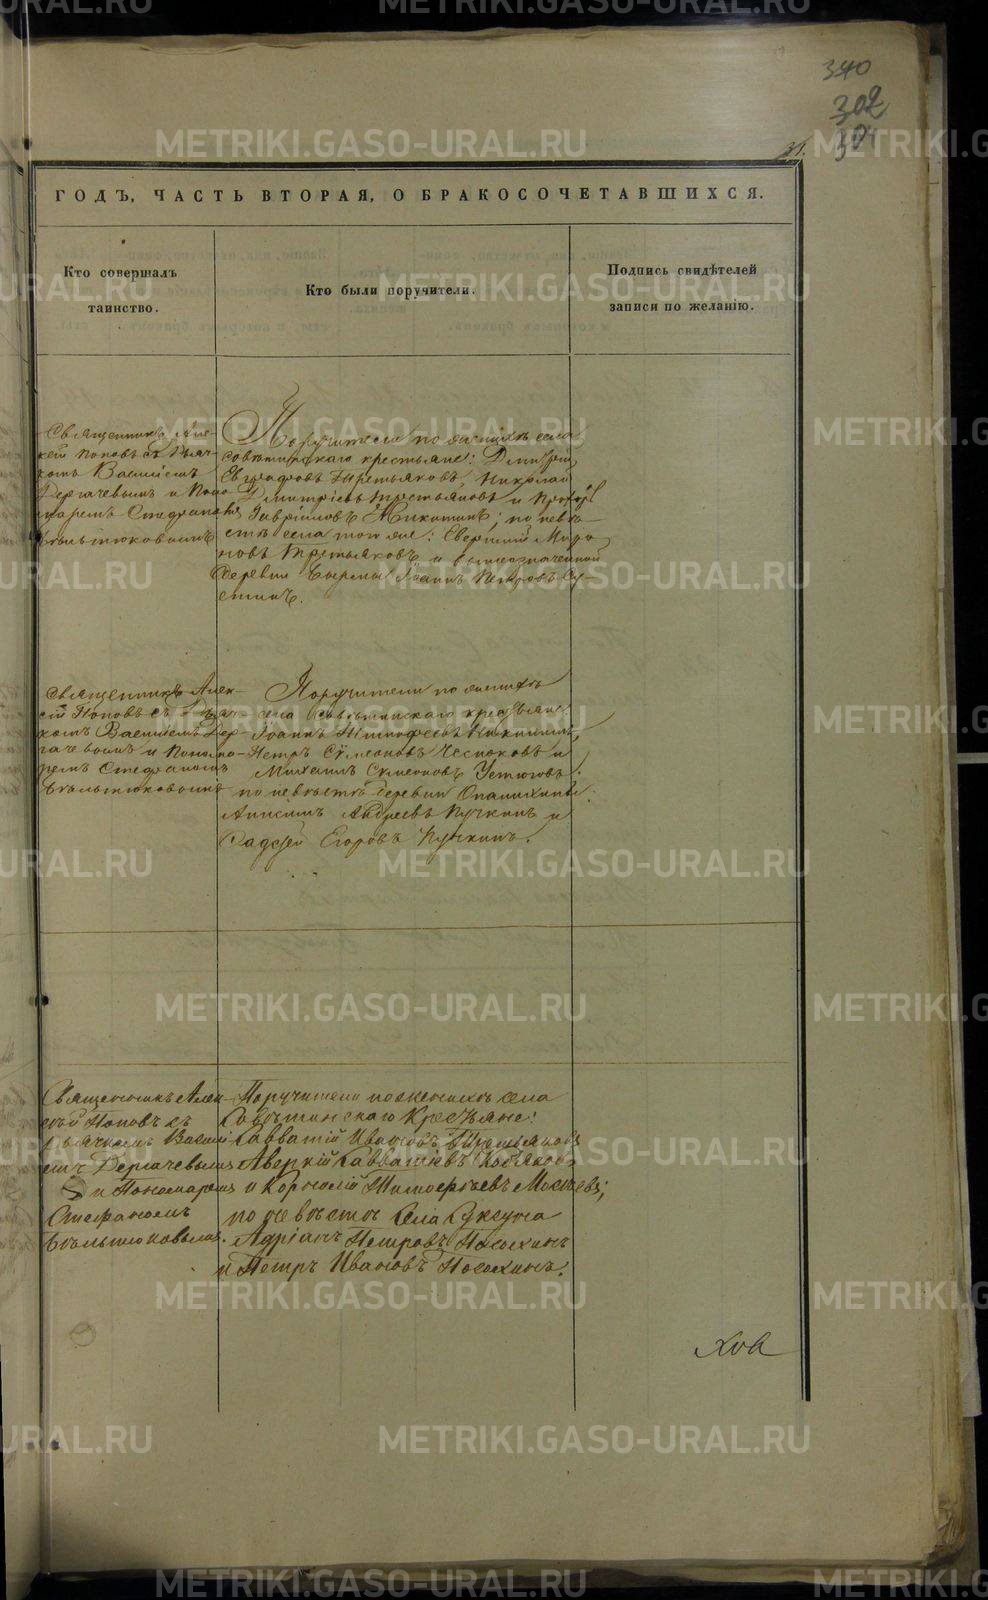 340
302
304
31.
ГОДЪ, ЧАСТЬ ВТОРАЯ, О БРАКОСОЧЕТАВШИХСЯ.
Кто совершалъ
таинство.
Кто были поручители.
Подпись свидѣтелей
записи по желанію.
Священникъ Але-
ксій Поповъ съ Дьяч-
комъ Василіемъ
Дергачевымъ и Поно-
маремъ Стефаномъ
Бѣльтюковымъ
Поручители по женихѣ села
Совѣтинскаго крестьяне: Дмитрій
Евграфовъ Третьяковъ, Николай
Дмитріевъ Третьяковъ и Прокорій
Гавріиловъ Никитинъ; по невѣ-
стѣ села того же: Евгеній Миро-
новъ Третьяковъ и вышеозначенной
деревни Бырмы Іоаннъ Петровъ Су-
стинъ.
Священникъ Алек-
сій Поповъ съ Дьяч-
комъ Василіемъ Дер-
гачевымъ и Понома-
ремъ Стефаномъ
Бѣльтюковымъ
Поручители по женихѣ
села Совѣтинскаго крестьяне
Іоаннъ Тимофеевъ Никитинъ,
Петръ Сѵмеоновъ Чесноковъ и
Михаилъ Симеоновъ Устюговъ.
по невѣстѣ деревни Опалихины:
Анисимъ Андреевъ Пучкинъ и
Фадѣй Егоровъ Пучкинъ.
Священникъ Алек-
сѣй Поповъ съ
Дьячкомъ Василі-
емъ Дергачевымъ
и Пономаремъ
Стефаномъ
Бѣльтюковымъ.
Поручители по женихѣ села
Совѣтинскаго Крестьяне:
Савватій Ивановъ Третьяковъ
Аверкій Савватіевъ Кобяковъ
и Корнилій Тимофѣевъ Мосѣевъ;
по невѣстѣ села Суксуна
Адріанъ Петровъ Пососхинъ
и Петръ Ивановъ Пососхинъ.
METRIKI.GASO-URAL.RU